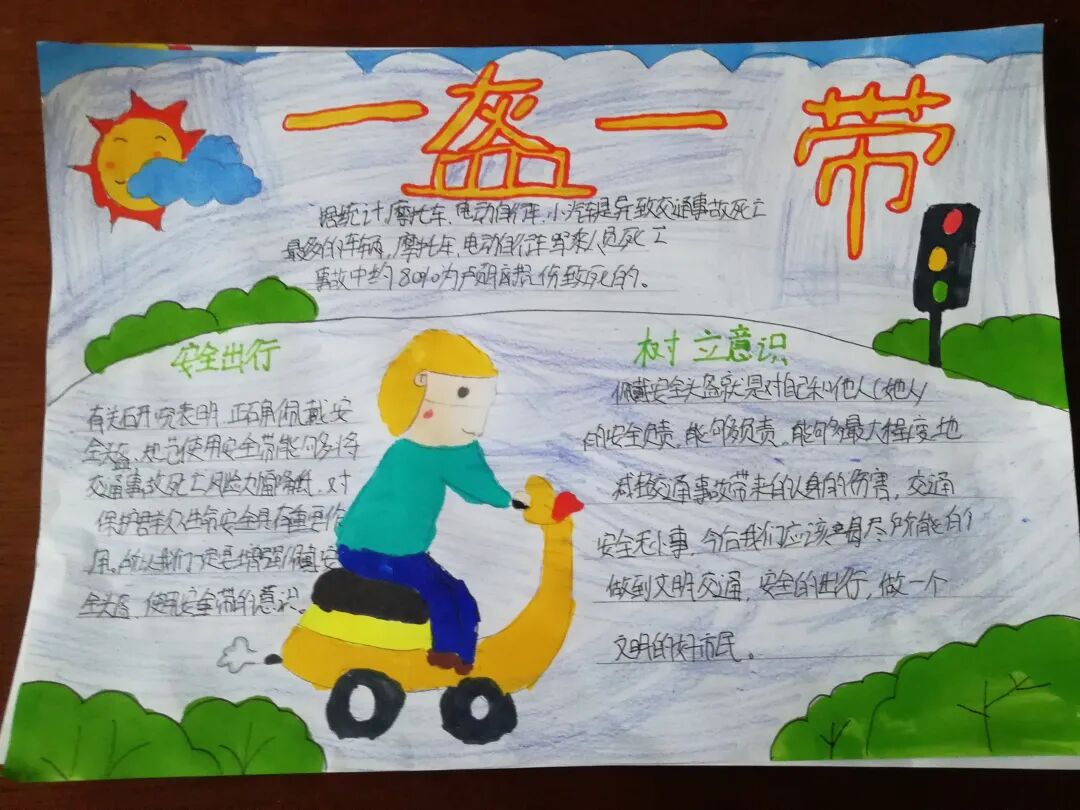 一盔一带
据统计,摩托车、电动自行车、小汽车是导致交通事故死亡
最多的车辆,摩托车、电动自行车驾乘人员死亡
事故中约80%为颅脑损伤致死的。
安全出行
有关研究表明,正确佩戴安
全头盔、规范使用安全带能够将
交通事故死亡风险大幅降低,对
保护群众生命安全具有重要作
用。所以我们一定要增强佩戴安
全头盔、使用安全带的意识。
树立意识
佩戴安全头盔就是对自己和他人(她人)
的安全负责,能够负责,能够最大程度地
减轻交通事故带来的人身的伤害,交通
安全无小事,今后我们应该尽所能的
做到文明交通,安全的出行,做一个
文明的好市民。